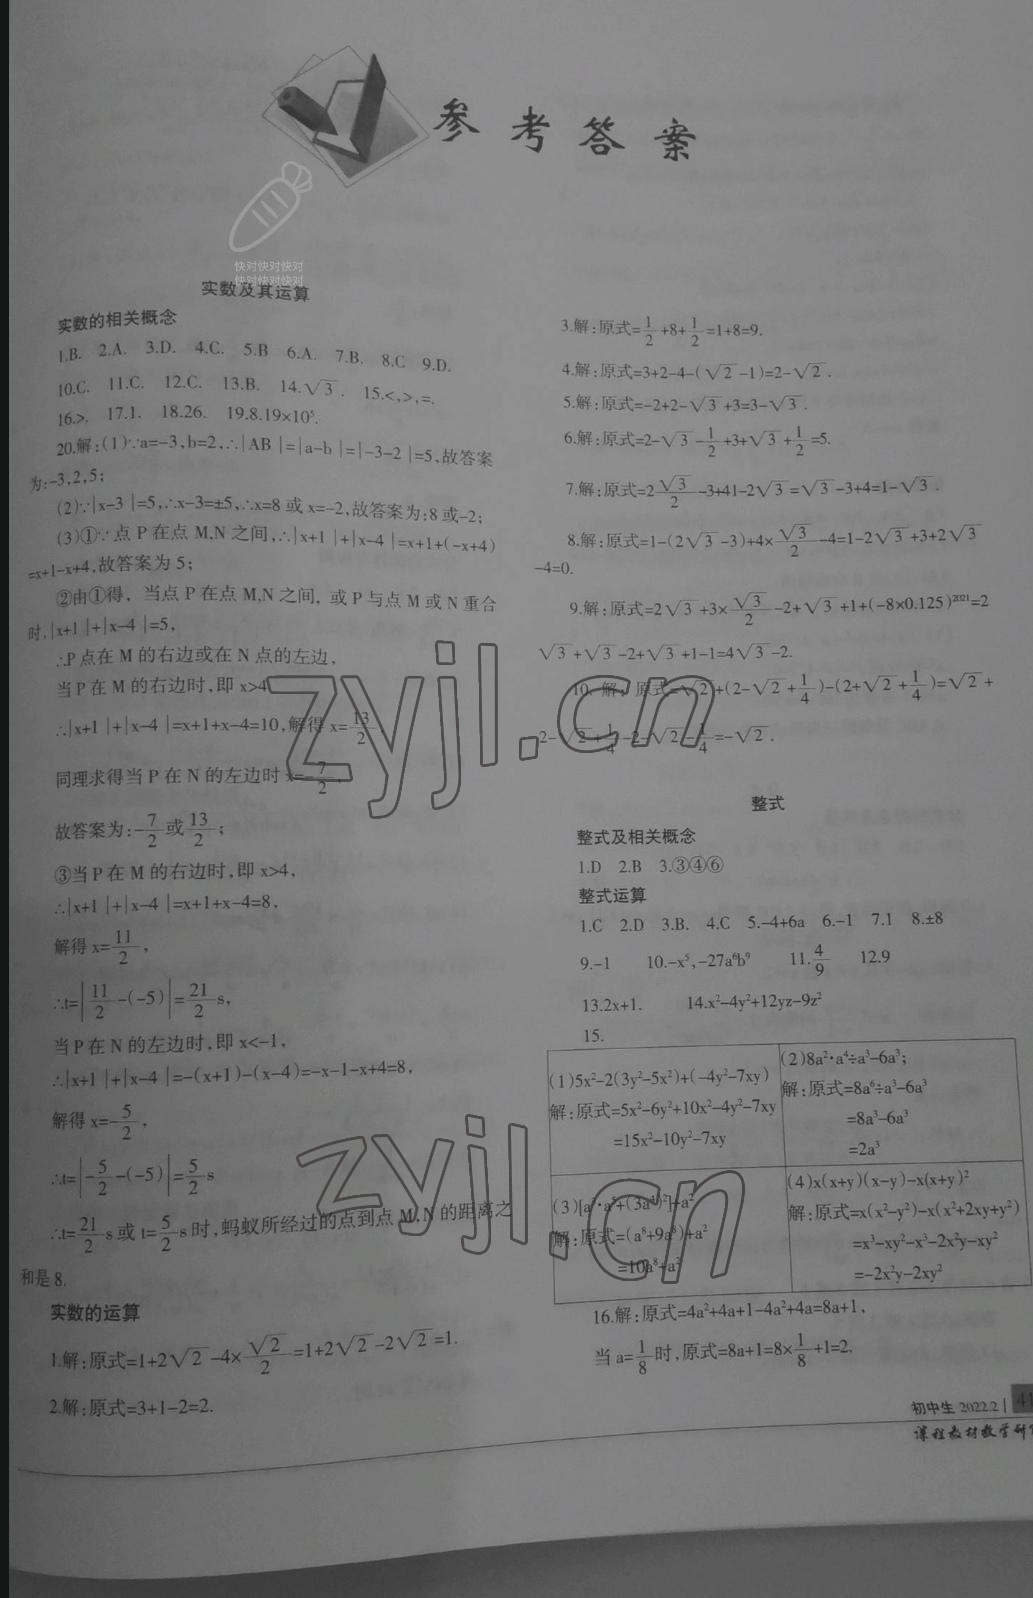 参考答案
快对快对快对
快对快对快对
实数及其运算
实数的相关概念
1.B. 2.A. 3.D. 4.C. 5.B 6.A. 7.B. 8.C 9.D.
10.C. 11.C. 12.C. 13.B. 14.√3. 15.<,>,=.
16.>. 17.1. 18.26. 19.8.19×10⁵.
20.解:(1)∵a=-3,b=2,∴|AB|=|a-b|=|-3-2|=5,故答案
为:-3,2,5;
(2)∵|x-3|=5,∴x-3=±5,∴x=8或x=-2,故答案为:8或-2;
(3)①∵点P在点M,N之间,∴|x+1|+|x-4|=x+1+(-x+4)
=x+1-x+4,故答案为5;
②由①得,当点P在点M,N之间,或P与点M或N重合
时,|x+1|+|x-4|=5,
∴P点在M的右边或在N点的左边,
当P在M的右边时,即x>4
∴|x+1|+|x-4|=x+1+x-4=10,解得x=13/2,
同理求得当P在N的左边时x=-7/2,
故答案为:-7/2或13/2;
③当P在M的右边时,即x>4,
∴|x+1|+|x-4|=x+1+x-4=8,
解得x=11/2,
∴t=|11/2-(-5)|=21/2s,
当P在N的左边时,即x<-1,
∴|x+1|+|x-4|=-(x+1)-(x-4)=-x-1-x+4=8,
解得x=-5/2,
∴t=|-5/2-(-5)|=5/2s
∴t=21/2s或t=5/2s时,蚂蚁所经过的点到点M,N的距离之
和是8.
实数的运算
1.解:原式=1+2√2-4×√2/2=1+2√2-2√2=1.
2.解:原式=3+1-2=2.
3.解:原式=1/2+8+1/2=1+8=9.
4.解:原式=3+2-4-(√2-1)=2-√2.
5.解:原式=-2+2-√3+3=3-√3.
6.解:原式=2-√3-1/2+3+√3+1/2=5.
7.解:原式=2√3/2-3+41-2√3=√3-3+4=1-√3.
8.解:原式=1-(2√3-3)+4×√3/2-4=1-2√3+3+2√3
-4=0.
9.解:原式=2√3+3×√3/2-2+√3+1+(-8×0.125)²⁰²¹=2
√3+√3-2+√3+1-1=4√3-2.
10.解:原式=√2+(2-√2+1/4)-(2+√2+1/4)=√2+
2-√2+1/4-2-√2-1/4=-√2.
整式
整式及相关概念
1.D 2.B 3.③④⑥
整式运算
1.C 2.D 3.B. 4.C 5.-4+6a 6.-1 7.1 8.±8
9.-1 10.-x⁵,-27a⁶b⁹ 11.4/9 12.9
13.2x+1. 14.x²-4y²+12yz-9z²
15.
(1)5x²-2(3y²-5x²)+(-4y²-7xy)
解:原式=5x²-6y²+10x²-4y²-7xy
=15x²-10y²-7xy
(2)8a²·a⁴÷a³-6a³;
解:原式=8a⁶÷a³-6a³
=8a³-6a³
=2a³
(3)[a³·a⁵+(3a⁴)²]÷a²
解:原式=(a⁸+9a⁸)÷a²
=10a⁸÷a²
(4)x(x+y)(x-y)-x(x+y)²
解:原式=x(x²-y²)-x(x²+2xy+y²)
=x³-xy²-x³-2x²y-xy²
=-2x²y-2xy²
16.解:原式=4a²+4a+1-4a²+4a=8a+1,
当a=1/8时,原式=8a+1=8×1/8+1=2.
初中生 2022.2 | 41
课程教材教学研
zyjl.cn
zyjl.cn